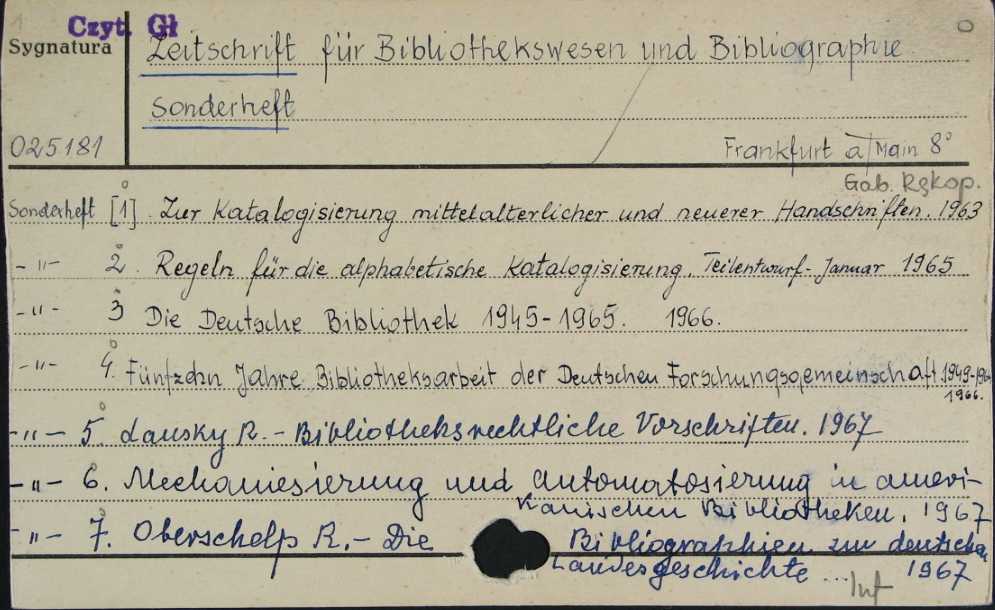 Czyt. Gł
Sygnatura
Zeitschrift für Bibliothekswesen und Bibliographie
Sonderheft
025181
Frankfurt a/Main 8°
Gab. Rękop.
Sonderheft [1]. Zur Katalogisierung mittelalterlicher und neuerer Handschriften. 1963
- " - 2. Regeln für die alphabetische Katalogisierung. Teilentwurf - Januar 1965
- " - 3 Die Deutsche Bibliothek 1945-1965. 1966.
- " - 4. Fünfzehn Jahre Bibliotheksarbeit der Deutschen Forschungsgemeinschaft
1966.
- " - 5. Lansky R. - Bibliotheksrechtliche Vorschriften. 1967
- " - 6. Mechaniesierung und Automatosierung in ameri-
kanischen Bibliotheken. 1967
- " - 7. Oberschelp R. - Die Bibliographien zur deutschen
Landesgeschichte ... 1967
Inf